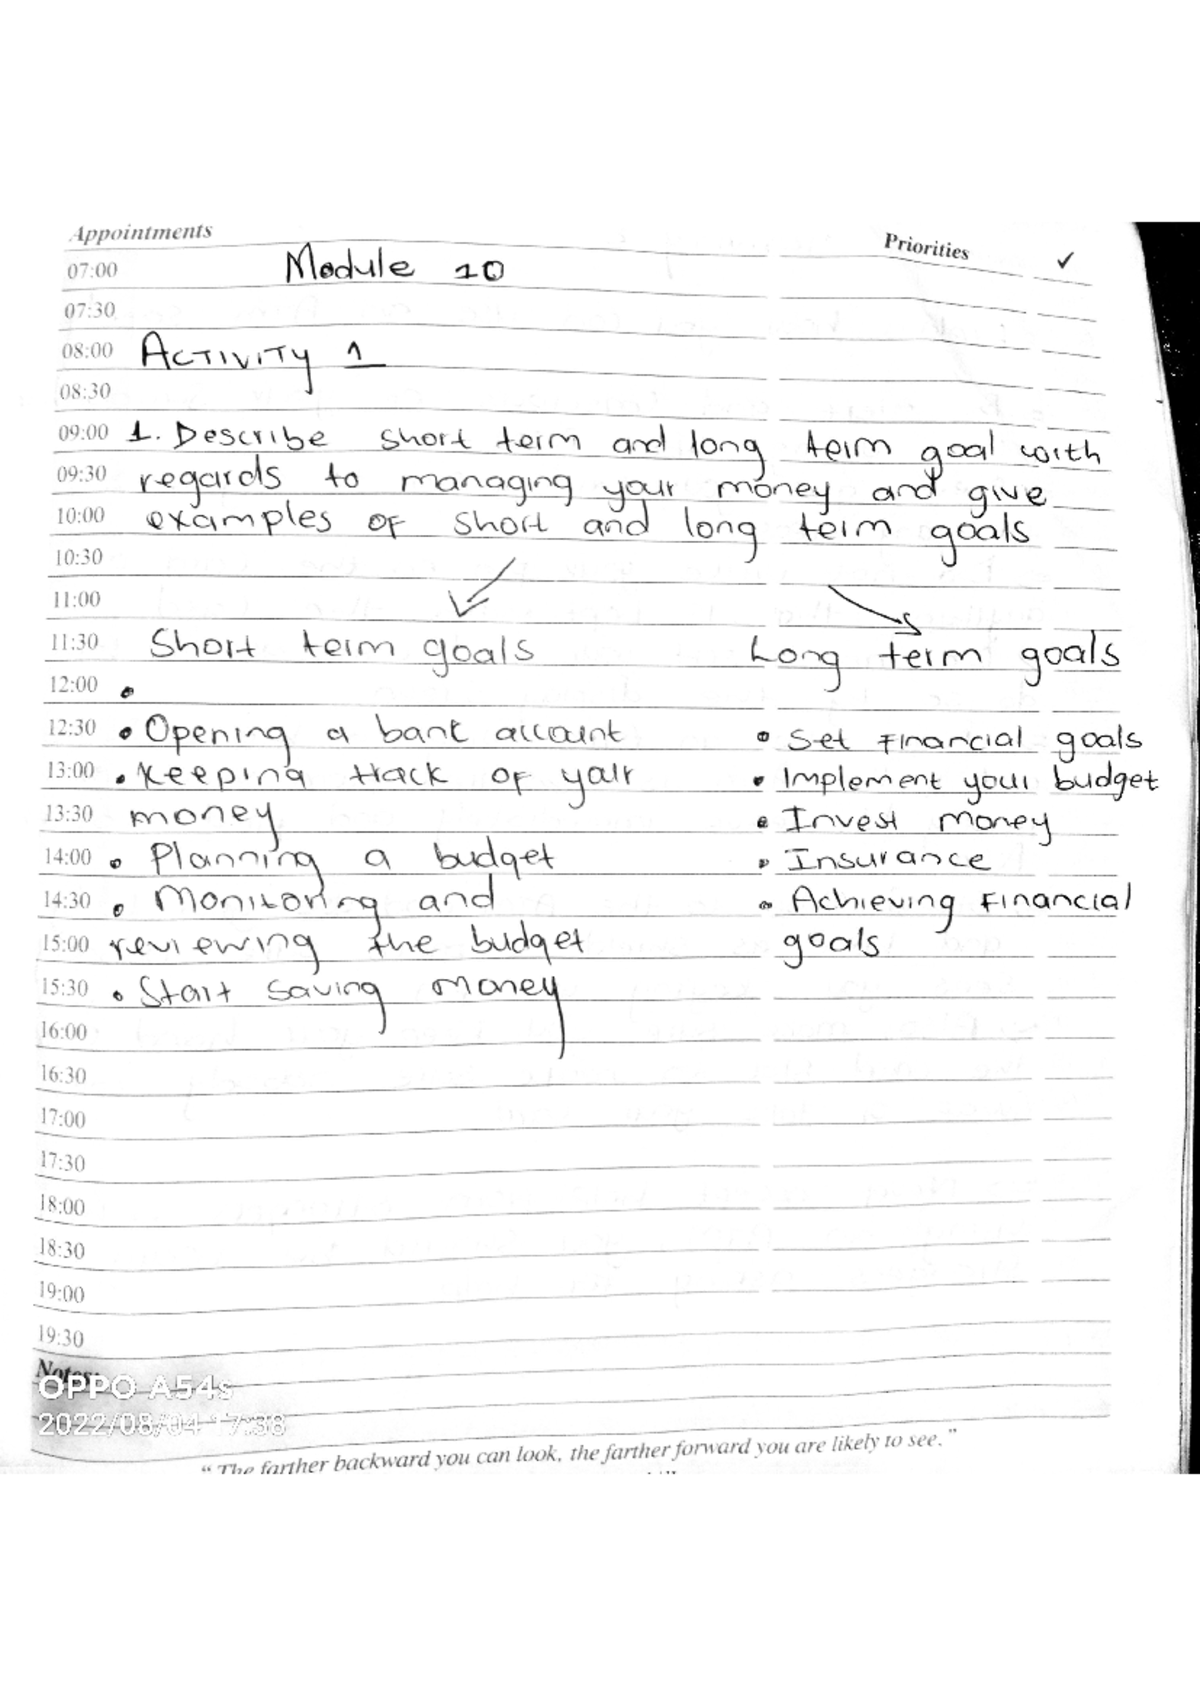 Appointments
Priorities ✓
07:00 Module 10
07:30
08:00 ACTIVITY 1
08:30
09:00 1. Describe short term and long term goal with
09:30 regards to managing your money and give
10:00 examples of short and long term goals
10:30
11:00
11:30 Short term goals Long term goals
12:00 •
12:30 • Opening a bank account • Set Financial goals
13:00 • Keeping track of your • Implement your budget
13:30 money • Invest money
14:00 • Planning a budget • Insurance
14:30 • Monitoring and • Achieving Financial
15:00 reviewing the budget goals
15:30 • Start saving money
16:00
16:30
17:00
17:30
18:00
18:30
19:00
19:30
Notes:
OPPO A54s
2022/08/04 17:38
“ The farther backward you can look, the farther forward you are likely to see. ”